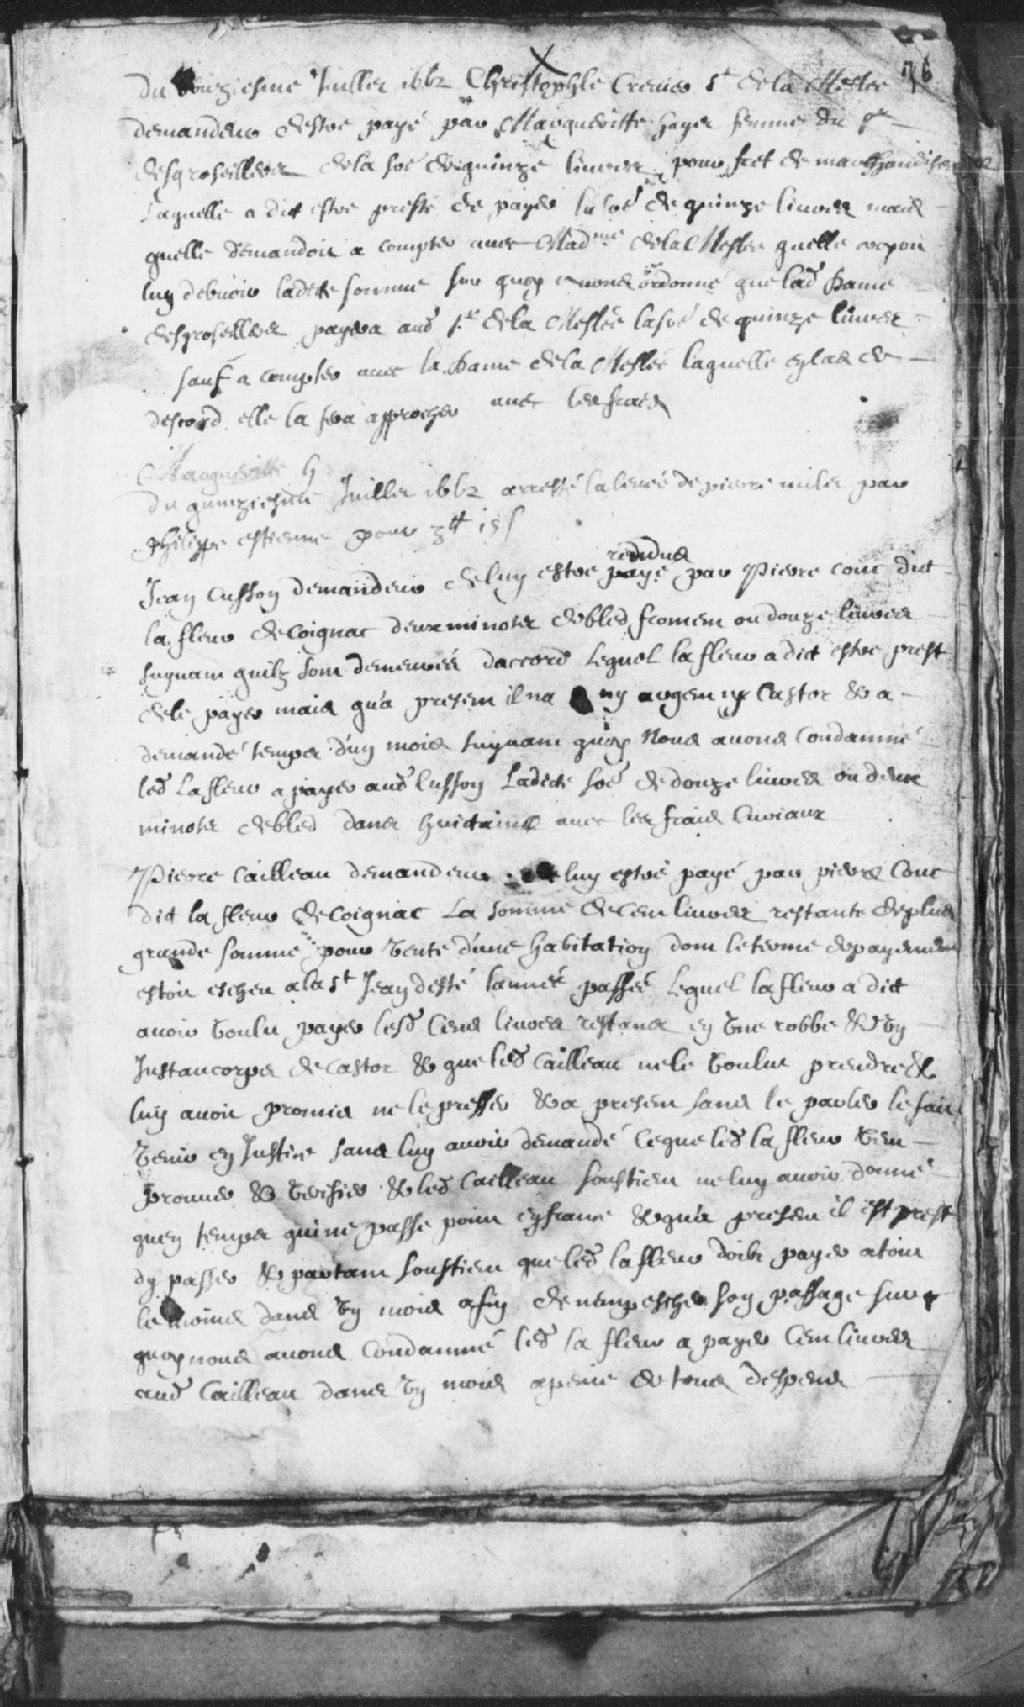 76
du quinziesme Juillet 1662 Christophle Crevier Sr de la Meslee
demandeur destre payé par Margueritte hayet femme du Sr
desgroseillers de la soe de quinze livres pour fret de marchandises
Laquelle a dit estre preste de payer la soe de quinze livres mais
quelle demandoit a compter avec Madme de la Meslee quelle croyoit
luy debvoir ladite somme sur quoy avons ordonné que lad Dame
desgroseillers payera aud Sr de la Meslée la soe de quinze livres
sauf a compter avec la Dame de la Meslée laquelle en cas de
descord elle la fera approcher avec les frais
Marguerite h
du quinziesme Juillet 1662 arresté la levée de pierre par
Philippe estienne pour 3tt 15s
Jean Cusson demandeur de luy estre rendus payé par Pierre Couc dit
la fleur de Coignac deux minots de bled froment ou douze livres
suyvant quilz sont demeurés daccord Lequel la fleur a dit estre prest
de le payer mais qua present il na ny argent ny Castor & a
demandé temps dun mois suyvant quoy Nous avons Condamné
led Lafleur a payer aud Cusson Ladite soe de douze livres ou deux
minots de bled dans huictaine avec les frais
Pierre Cailleau demandeur de luy estre payé par pierre Couc
dit la fleur de Coignac La somme de Cent livres restante de plus
grande somme pour vente d'une habitation dont le terme de payement
estoit escheu a la St Jean desté lannée passée Lequel lafleur a dit
avoir voulu payer lesd Cens livres restans en une robbe & un
Justaucorps de Castor & que led Cailleau ne le voulut prendre &
luy avoit promis ne le presser & a present sans le parler le fait
venir en Justice sans luy avoir demandé Ceque led la fleur veu
prouver & verifier & led Cailleau soustient ne luy avoir donné
quen temps quine passe point en france & qu'a present il est prest
dy passer & partant soustient que led lafleur doibt payer a tout
le moins dans un mois afin de nempescher son passage sur
quoy nous avons Condamné led la fleur a payer Cent livres
aud Cailleau dans un mois a peine de tous despens